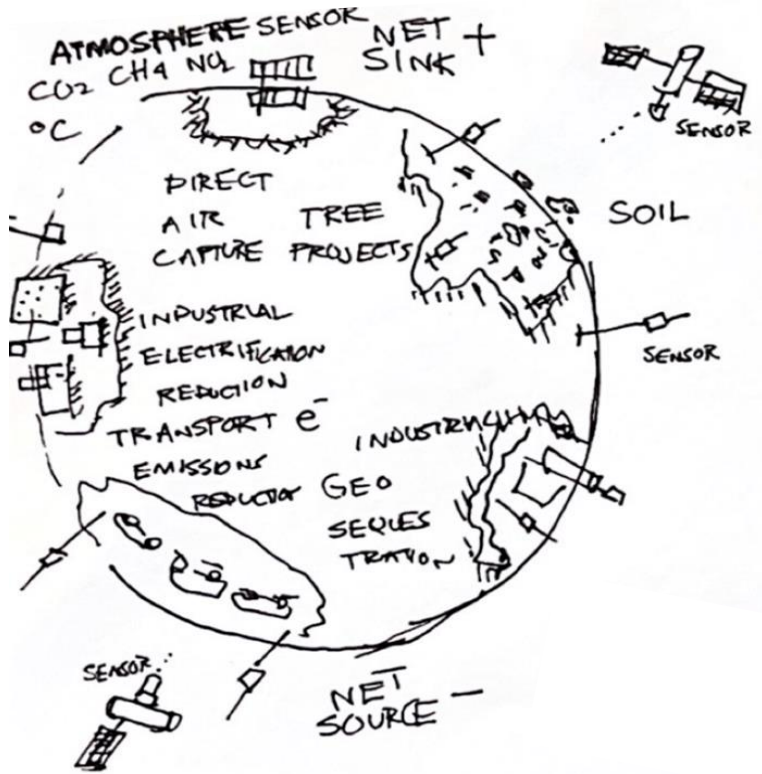 ATMOSPHERE SENSOR
CO2 CH4 NO2
°C
NET +
SINK
SENSOR
DIRECT
AIR
CAPTURE
TREE
PROJECTS
SOIL
SENSOR
INDUSTRIAL
ELECTRIFICATION
REDUCTION
TRANSPORT e-
EMISSIONS
REDUCTION
INDUSTRIAL
GEO
SEQUES
TRATION
SENSOR
NET
SOURCE -